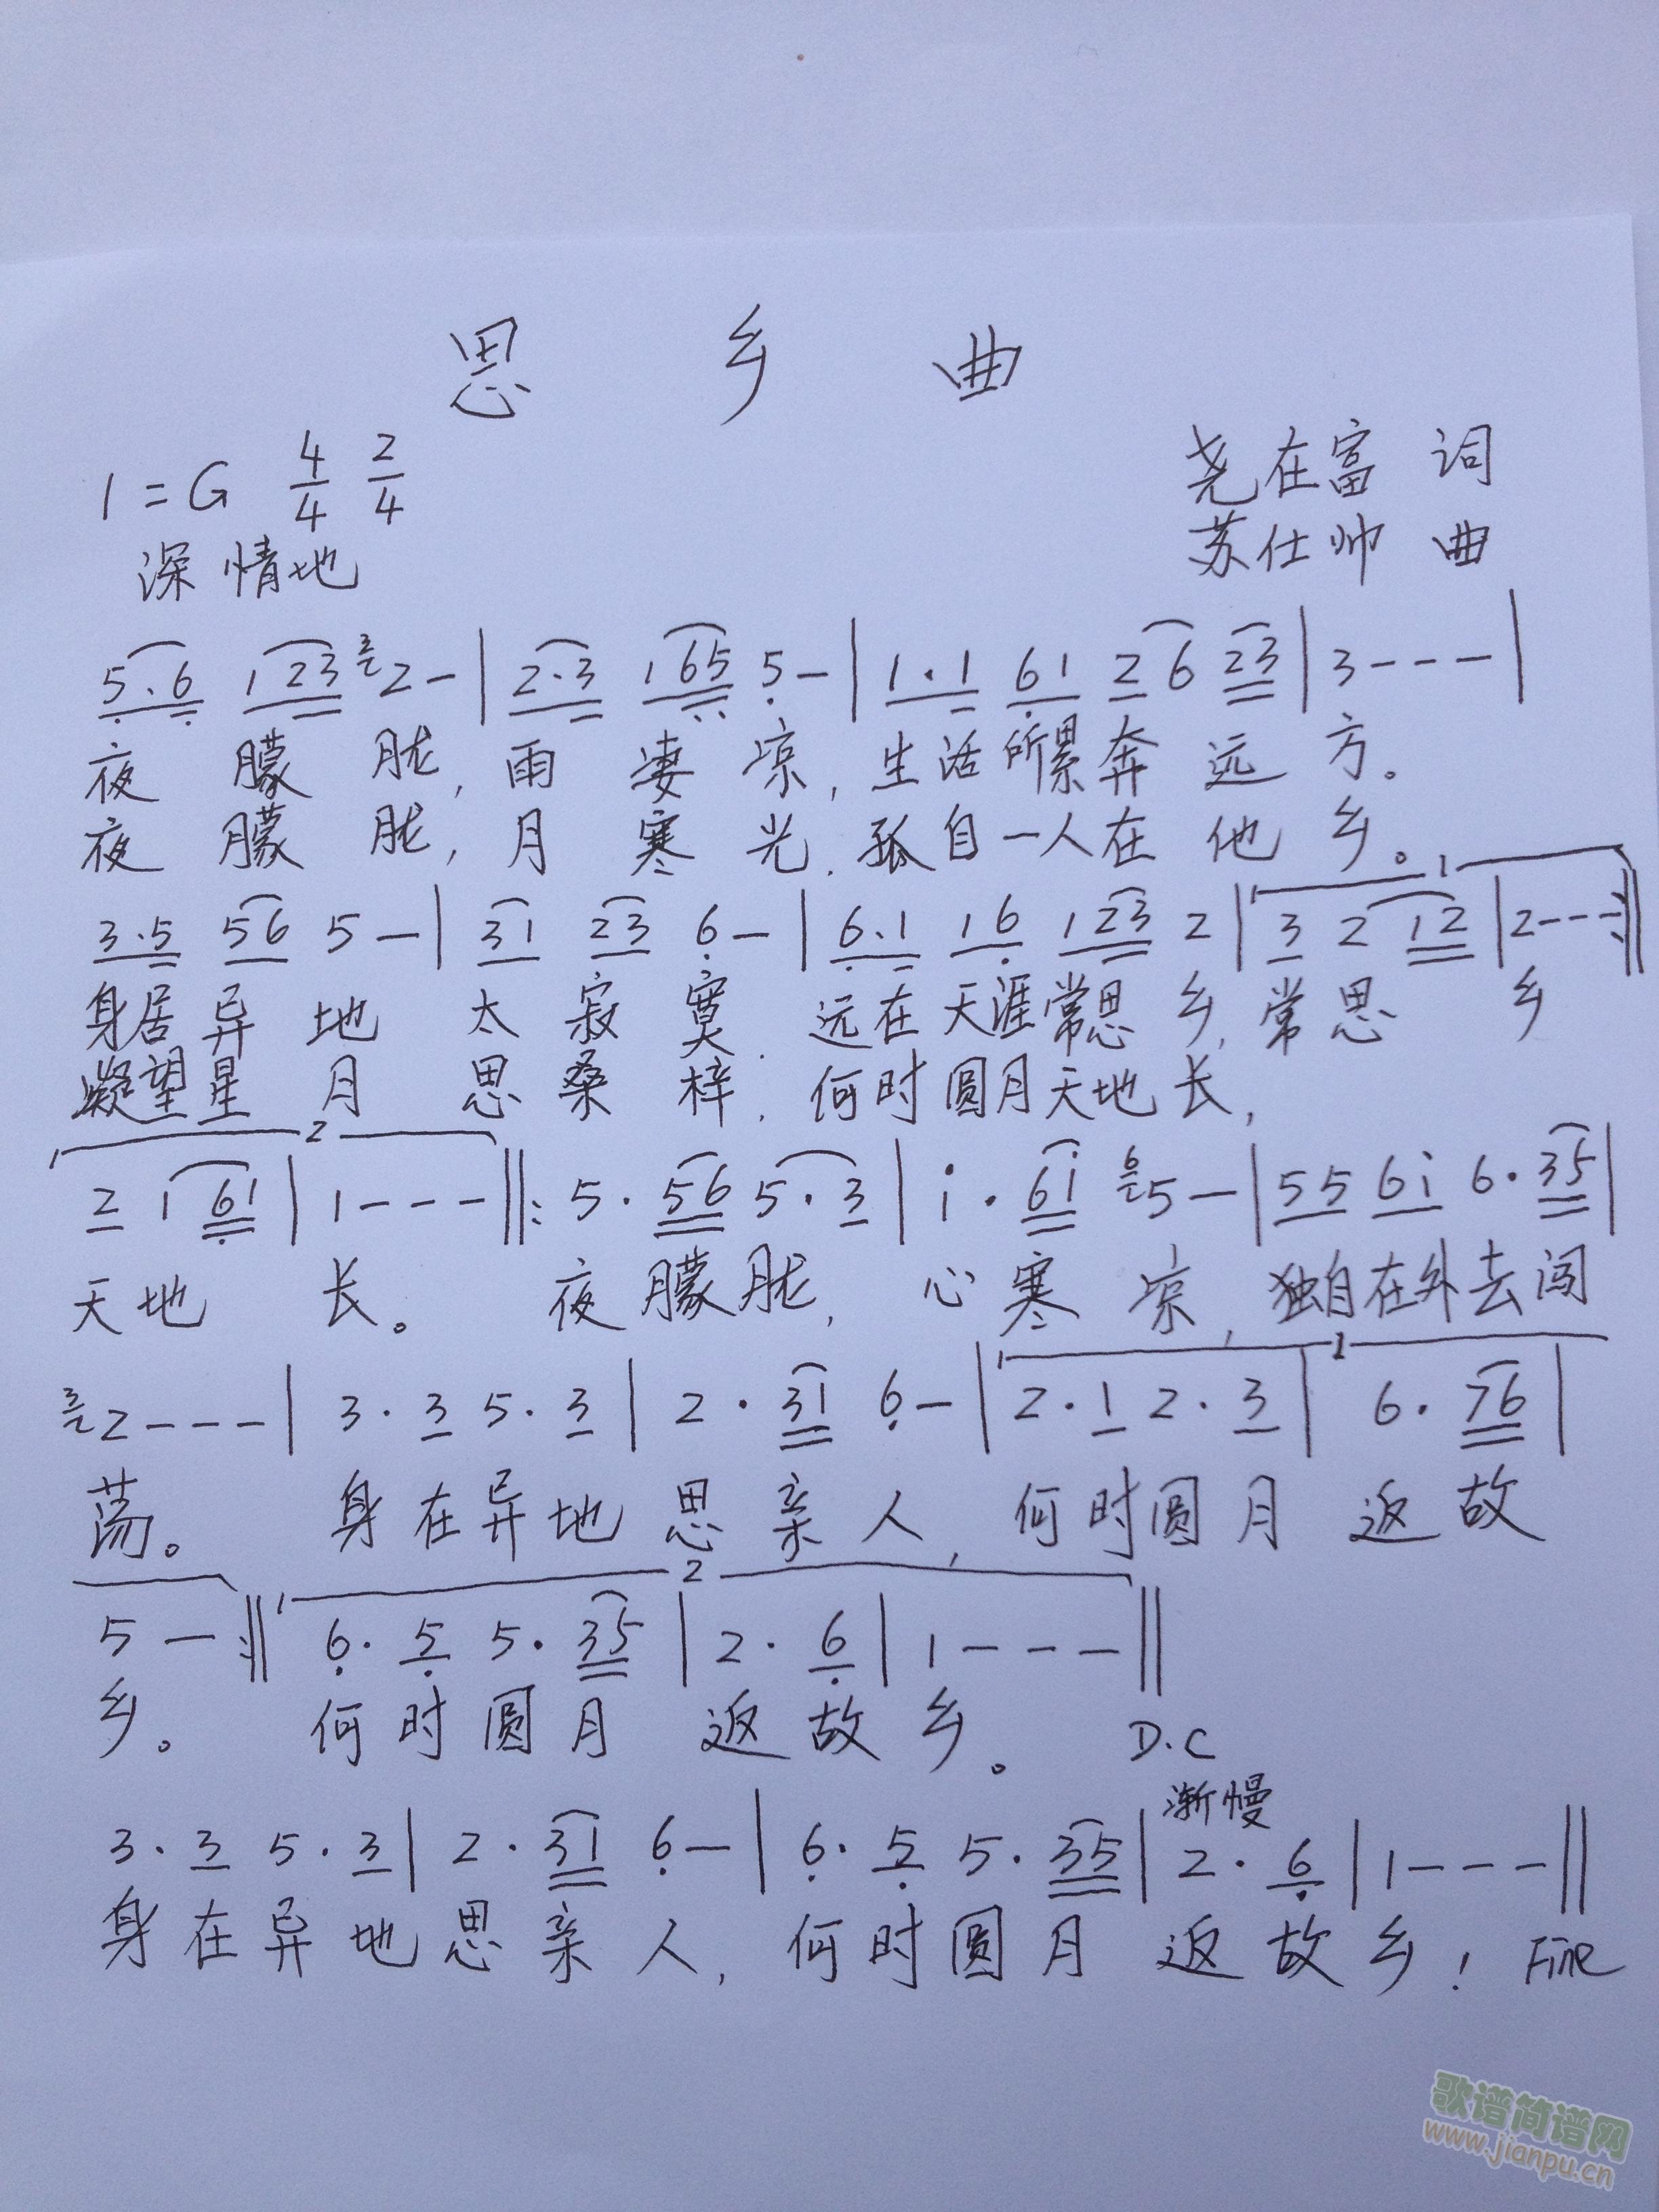 思 乡 曲
1=G 4/4 2/4
尧在富 词
深情地
苏仕帅 曲
5·6 123 3 2 - | 2·3 165 5 - | 1·1 61 2 6 23 | 3 - - - |
夜 朦 胧, 雨 凄 凉, 生活所累奔 远 方。
夜 朦 胧, 月 寒 光. 孤自一人在 他 乡。
3·5 56 5 - | 31 23 6 - | 6·1 16 123 2 | 1 3 2 12 | 2 - - - :||
身居异 地 太 寂 寞. 远在天涯常思 乡, 常思 乡
凝望星 月 思 桑 梓. 何时圆月天地长,
2
2 1 61 | 1 - - - ||: 5·56 5·3 | i·6i 6 5 - | 55 6i 6·35 |
天地 长。 夜 朦胧, 心 寒 凉, 独自在外去闯
1
3 2 - - - | 3·3 5·3 | 2·31 6 - | 2·1 2·3 | 6·76 |
荡。 身在异地 思 亲 人, 何时圆月 返故
2
5 - :|| 6·5 5·35 | 2·6 | 1 - - - ||
乡。 何时圆月 返故乡。 D.C
渐慢
3·3 5·3 | 2·31 6 - | 6·5 5·35 | 2·6 | 1 - - - ||
身在异地思亲人, 何时圆月 返故乡! Fine
歌谱简谱网
www.jianpu.cn